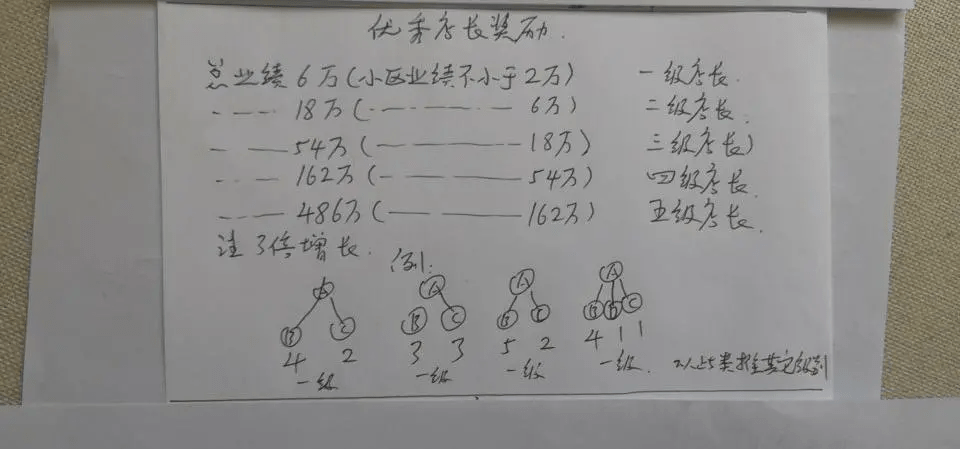 优秀店长奖励.
总业绩6万(小区业绩不小于2万) 一级店长.
-·-— 18万(-·-—— 6万) 二级店长.
-·-— 54万(-—— 18万) 三级店长)
-·-— 162万(-—— 54万) 四级店长.
-·-— 486万(-—— 162万) 五级店长.
注3倍增长. 例:
A A A A
B C B C B C B D C
4 2 3 3 5 2 4 1 1
一级 一级 一级 一级. 以此类推其它级别